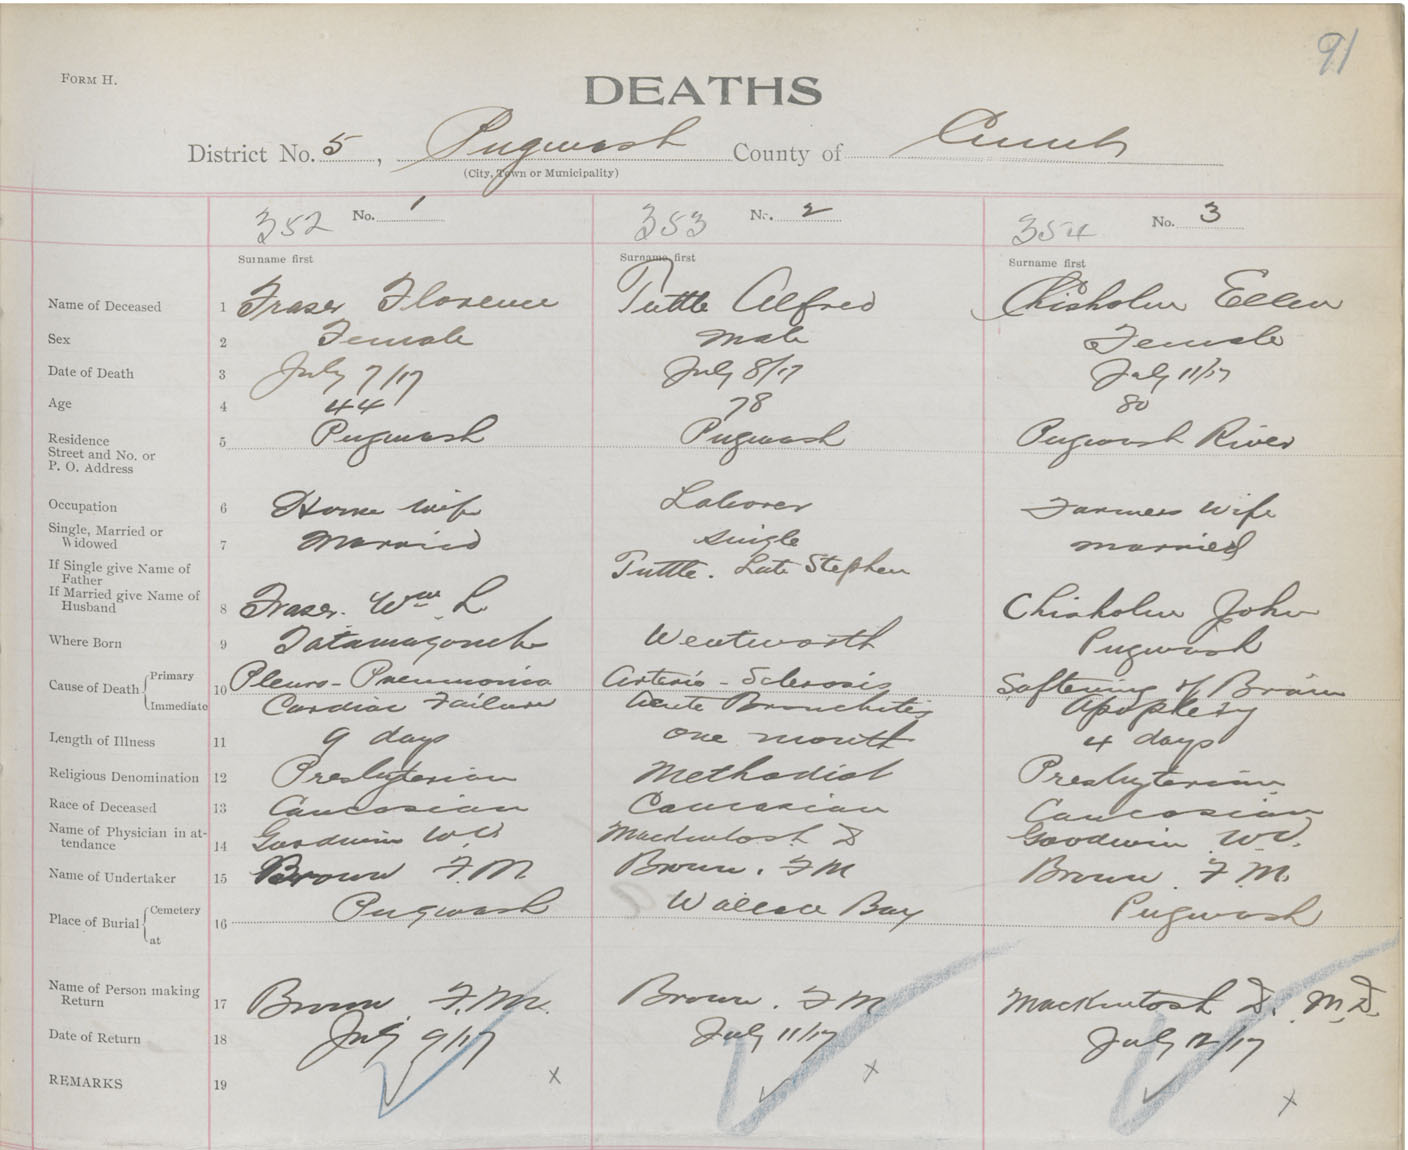 91
FORM H.
DEATHS
District No. 5, Pugwash County of Cumb
(City, Town or Municipality)
352 No. 1 353 No. 2 354 No. 3
Surname first Surname first Surname first
Name of Deceased 1 Fraser Florence Tuttle Alfred Chisholm Ellen
Sex 2 Female Male Female
Date of Death 3 July 7/17 July 8/17 July 11/17
Age 4 44 78 80
Residence 5 Pugwash Pugwash Pugwash River
Street and No. or
P. O. Address
Occupation 6 House wife Laborer Farmers Wife
Single, Married or
Widowed 7 Married single married
If Single give Name of Tuttle. Late Stephen
Father
If Married give Name of
Husband 8 Fraser. Wm L Chisholm John
Where Born 9 Tatamagouche Wentworth Pugwash
Cause of Death Primary 10 Pleuro-Pneumonia Arterio-Sclerosis Softening of Brain
Immediate Cardiac Failure Acute Bronchitis Apoplexy
Length of Illness 11 9 days one month 4 days
Religious Denomination 12 Presbyterian Methodist Presbyterian
Race of Deceased 13 Caucasian Caucasian Caucasian
Name of Physician in at-
tendance 14 Goodwin Mackintosh D Goodwin
Name of Undertaker 15 Brown F.M Brown. F M Brown. F.M.
Place of Burial Cemetery 16 Pugwash Wallace Bay Pugwash
at
Name of Person making
Return 17 Brown. F.M. Brown. F M Mackintosh D. M.D.
Date of Return 18 July 9/17 July 11/17 July 12/17
REMARKS 19 x x x